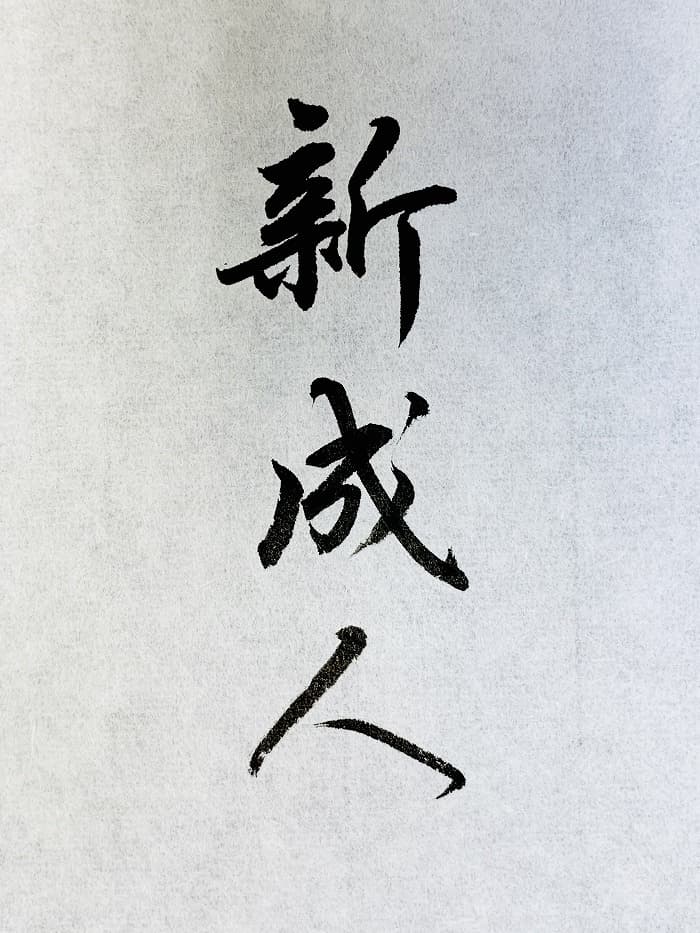 新成人